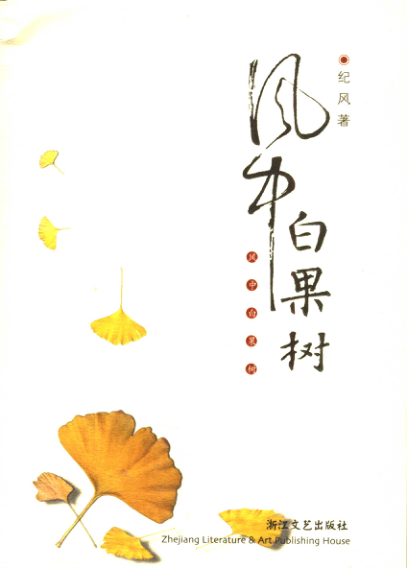 纪风著
风中白果树
风中白果树
浙江文艺出版社
Zhejiang Literature & Art Publishing House